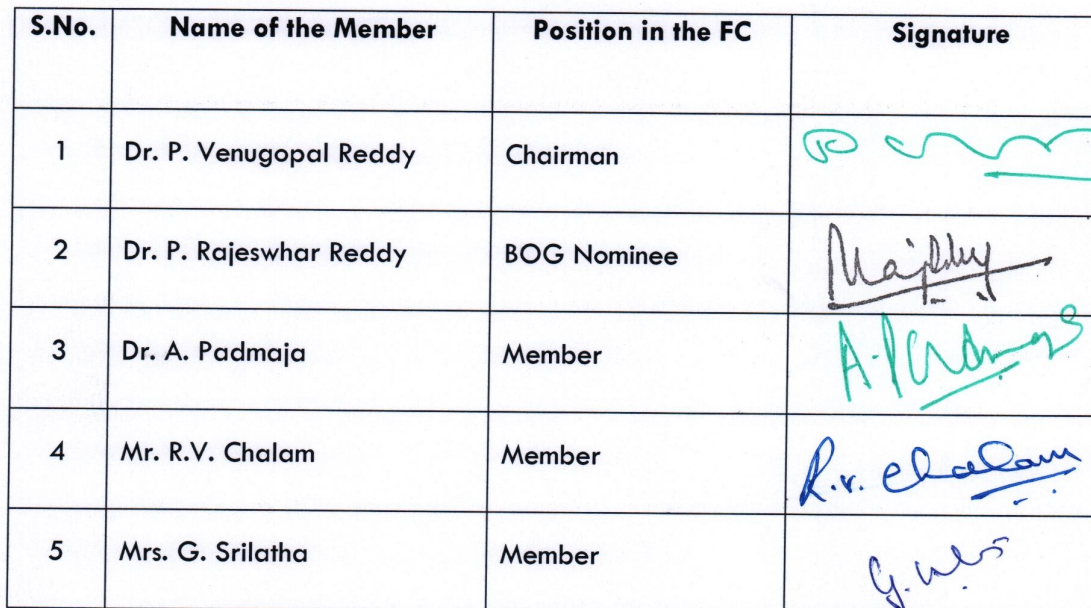 S.No. Name of the Member Position in the FC Signature
1 Dr. P. Venugopal Reddy Chairman
2 Dr. P. Rajeswhar Reddy BOG Nominee
3 Dr. A. Padmaja Member
4 Mr. R.V. Chalam Member R.v. Chalam
5 Mrs. G. Srilatha Member